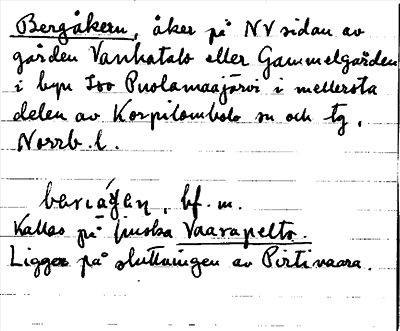 Bergåkern, åker på NV sidan av
gården Vanhatalo eller Gammelgården
i byn Iso Puolamaajärvi i mellersta
delen av Korpilombolo sn och tg,
Norrb. l.
bf. m.
Kallas på finska Vaarapelto.
Ligger på sluttningen av Pirtivaara.